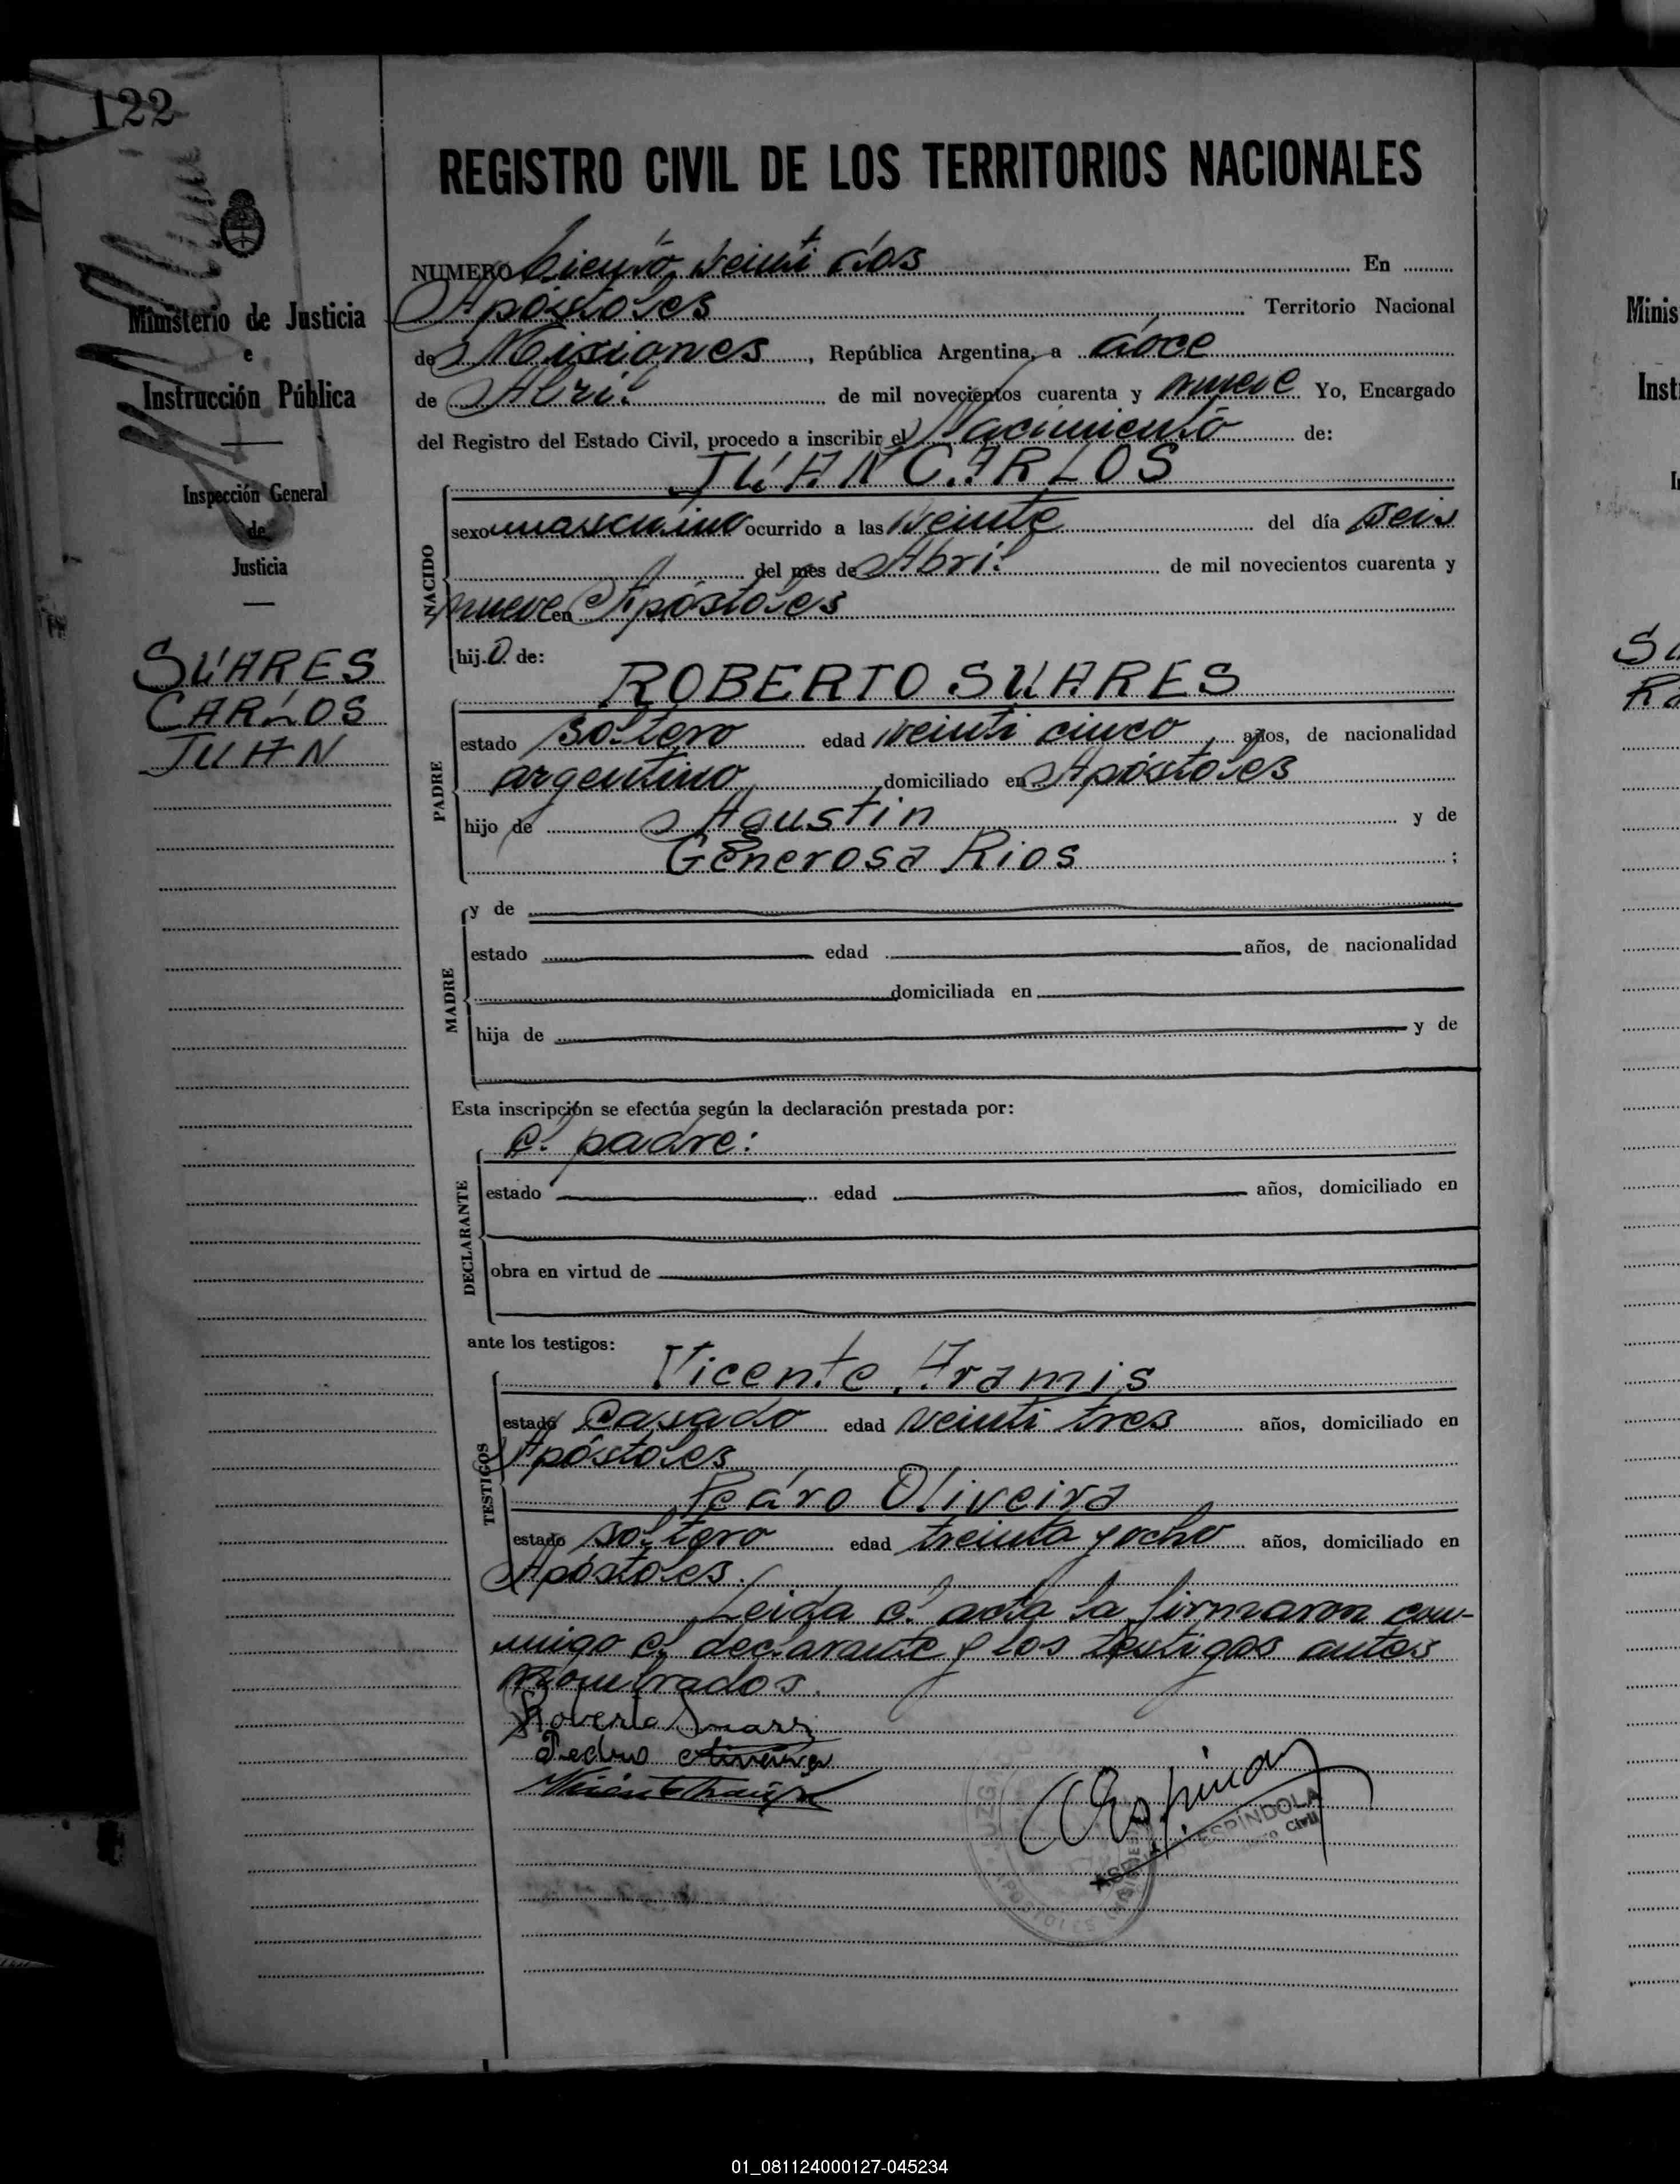 122
REGISTRO CIVIL DE LOS TERRITORIOS NACIONALES
Ministerio de Justicia
e
Instrucción Pública
Inspección General
de
Justicia
SUARES
CARLOS
JUAN
NUMERO Ciento veinti dos En
Apóstoles Territorio Nacional
de Misiones, República Argentina, a doce
de Abril de mil novecientos cuarenta y nueve Yo, Encargado
del Registro del Estado Civil, procedo a inscribir el Nacimiento de:
JUAN CARLOS
NACIDO
sexo masculino ocurrido a las veinte del día seis
del mes de Abril de mil novecientos cuarenta y
nueve en Apóstoles
hijo de:
ROBERTO SUARES
PADRE
estado soltero edad veinti cinco, años, de nacionalidad
argentino, domiciliado en Apóstoles
hijo de Agustin y de
Generosa Rios ;
MADRE
y de
estado edad años, de nacionalidad
domiciliada en
hija de y de
Esta inscripción se efectúa según la declaración prestada por:
el padre:
DECLARANTE
estado edad años, domiciliado en
obra en virtud de
ante los testigos:
TESTIGOS
Vicente Aramis
estado Casado edad veinti tres años, domiciliado en
Apóstoles
Pedro Oliveira
estado soltero edad treinta y ocho años, domiciliado en
Apóstoles.
Leida el acta la firmaron con-
migo el declarante y los testigos antes
nombrados.
Roberto Suares
Pedro Oliveira
ESPÍNDOLA
Civil
APOSTOLES
Minis
Inst
I
SU
RO
01_081124000127-045234